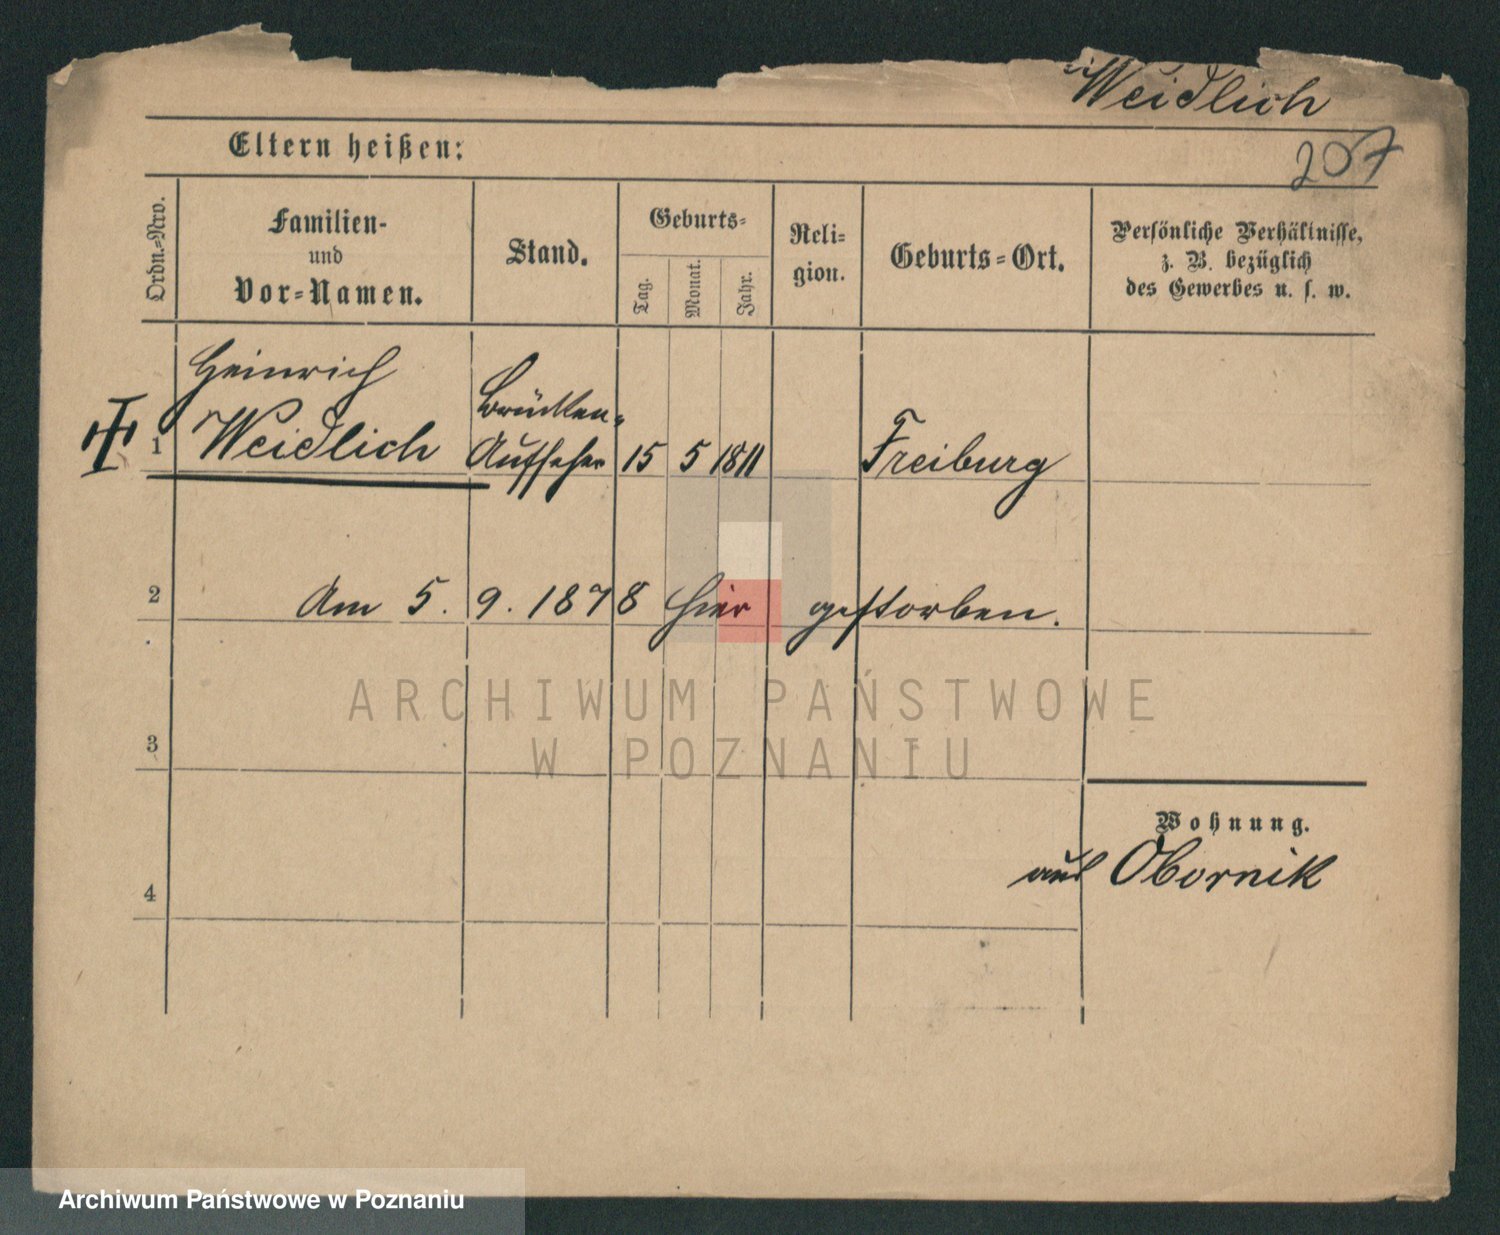 Weidlich
207
Eltern heißen:
Ordn.=Nro.
Familien-
und
Vor=Namen.
Stand.
Geburts=
Tag.
Monat.
Jahr.
Reli=
gion.
Geburts=Ort.
Persönliche Verhältnisse,
z. B. bezüglich
des Gewerbes u. s. w.
1
Heinrich
Weidlich
Brücken=
Aufseher
15 5 1811
Freiburg
2
Am 5. 9. 1878 hier gestorben.
ARCHIWUM PAŃSTWOWE
W POZNANIU
3
Wohnung.
aus Obornik
4
Archiwum Państwowe w Poznaniu